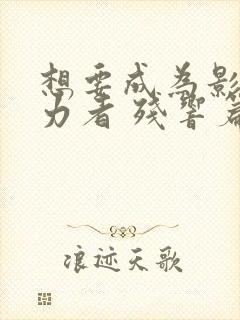 想要成为影
力者 残响篇
浪迹天歌